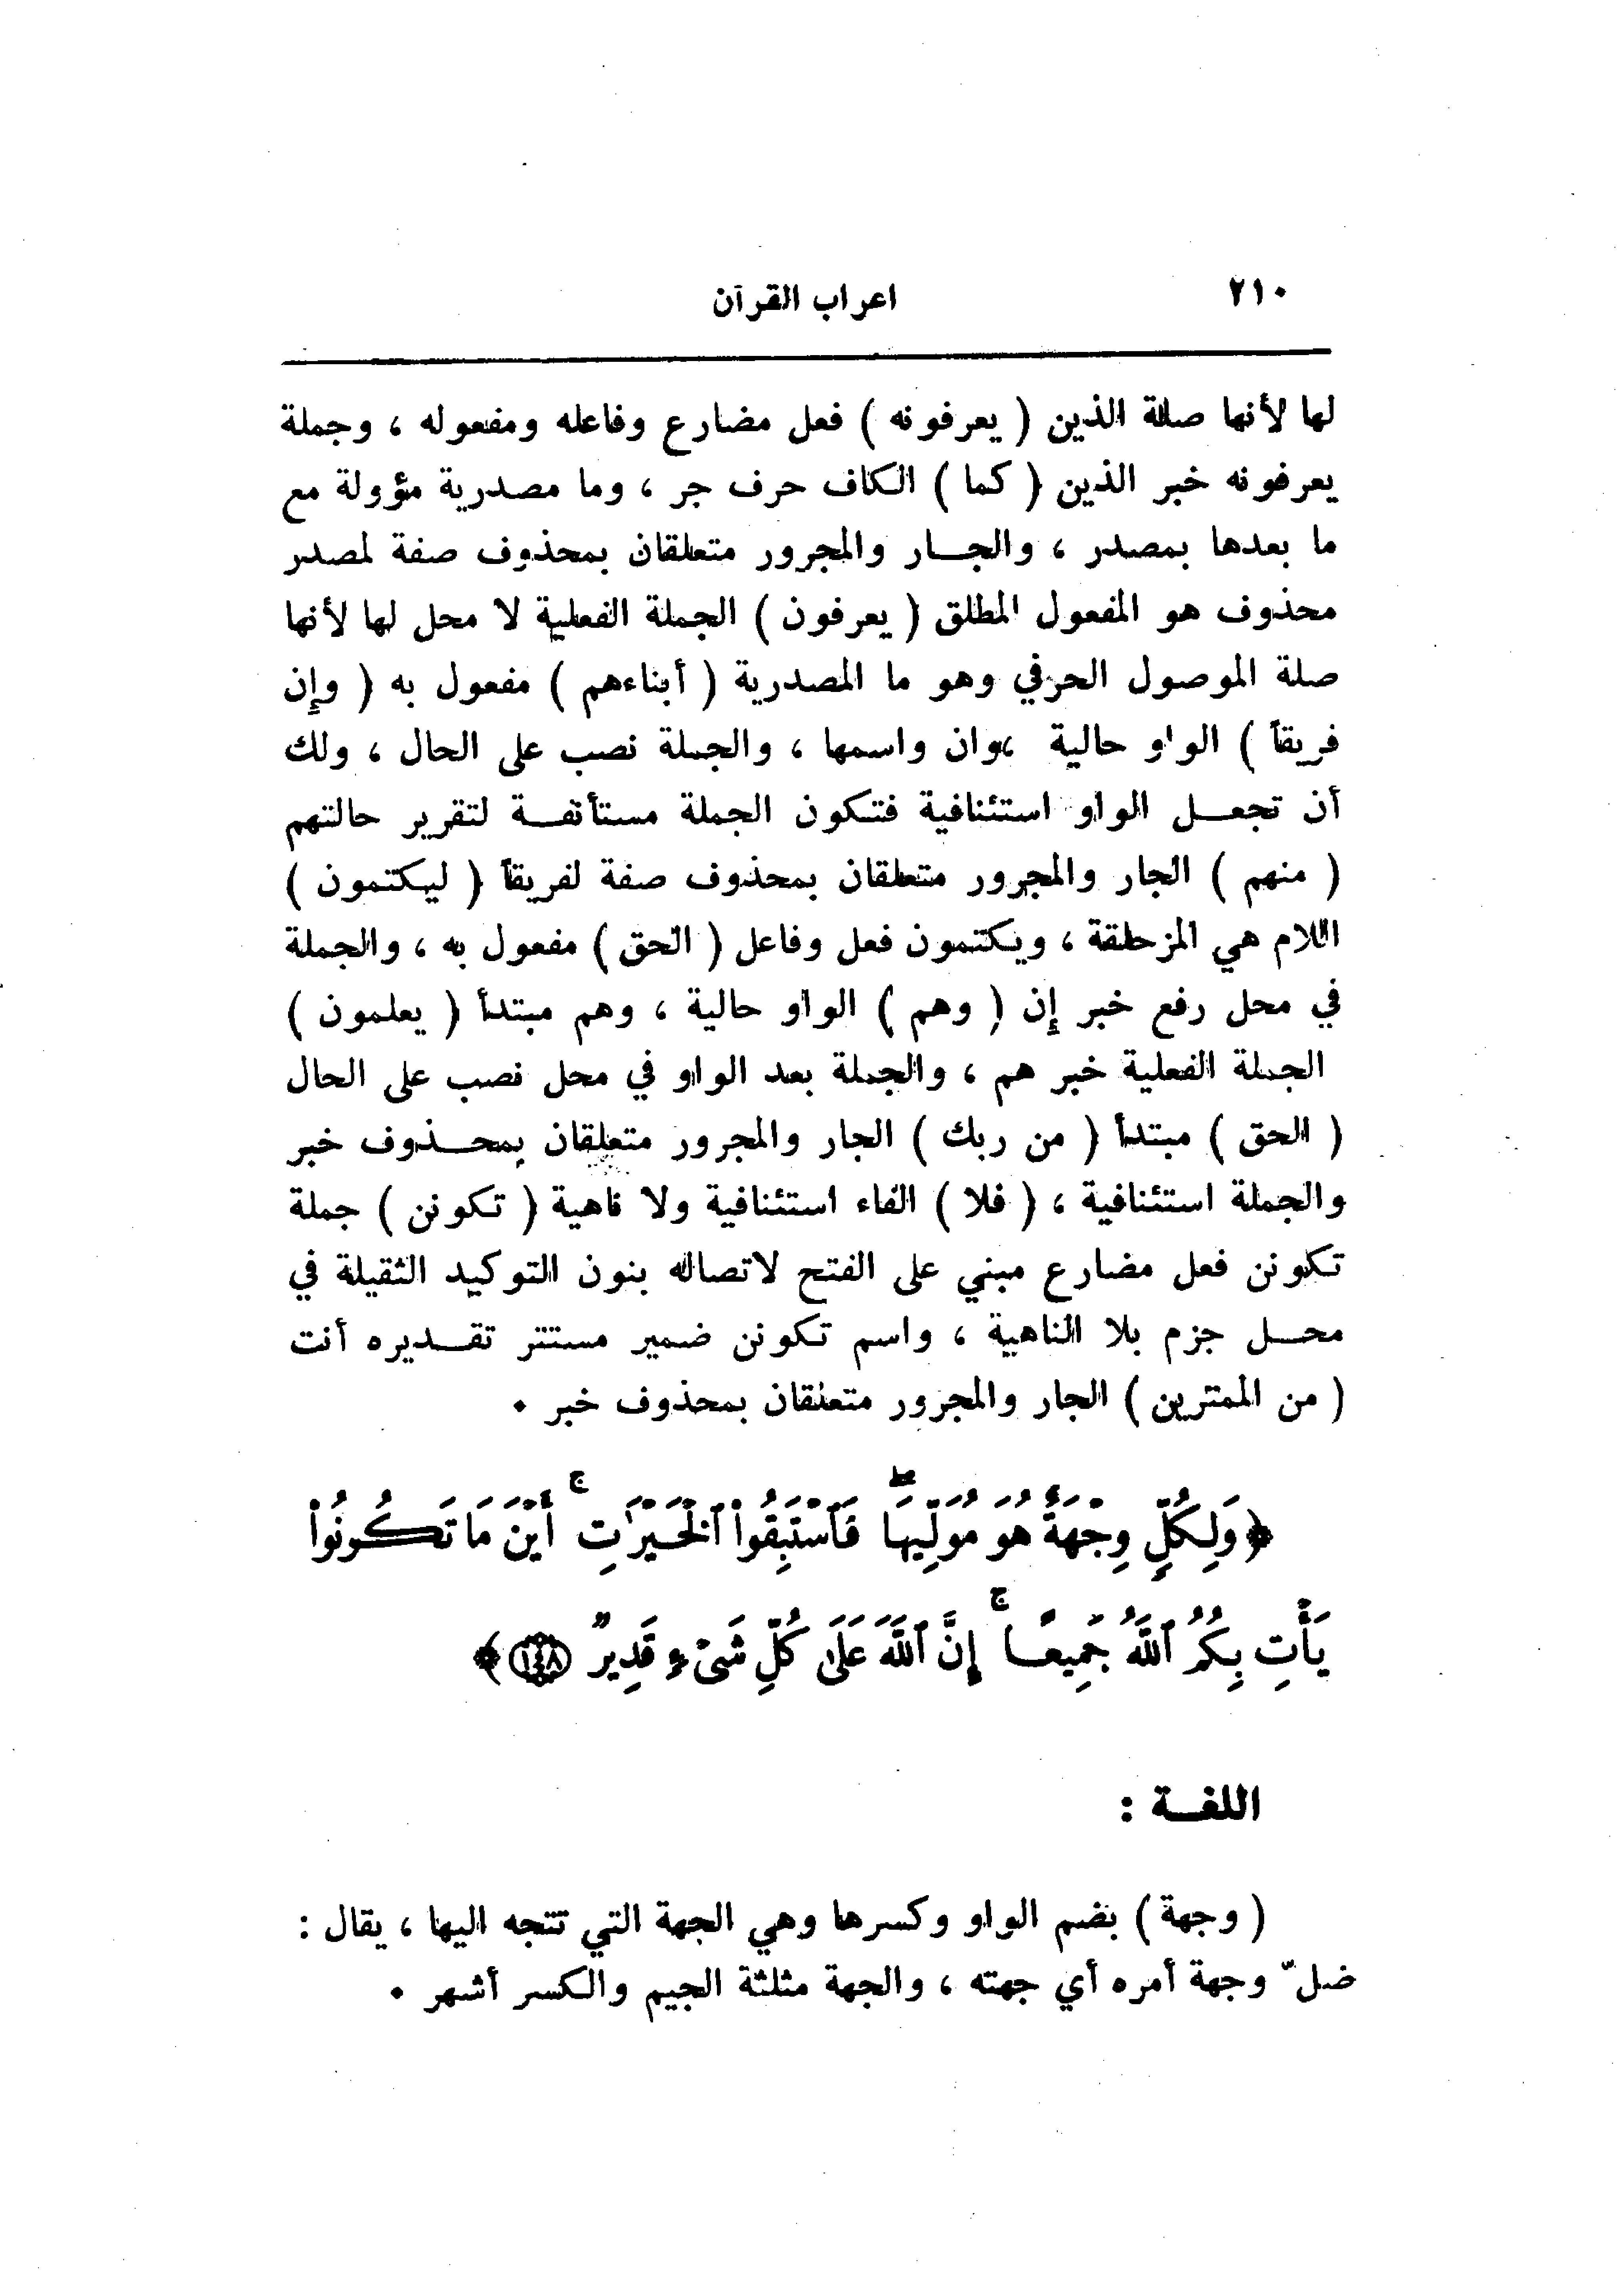 ٢١٠ اعراب القرآن
لها لأنها صلة الذين ( يعرفونه ) فعل مضارع وفاعله ومفعوله ، وجملة
يعرفونه خبر الذين ( كما ) الكاف حرف جر ، وما مصدرية مؤولة مع
ما بعدها بمصدر ، والجــار والمجرور متعلقان بمحذوف صفة لمصدر
محذوف هو المفعول المطلق ( يعرفون ) الجملة الفعلية لا محل لها لأنها
صلة الموصول الحرفي وهو ما المصدرية ( أبناءهم ) مفعول به ( وإن
فريقاً ) الواو حالية ، وان واسمها ، والجملة نصب على الحال ، ولك
أن تجعــل الواو استئنافية فتكون الجملة مستأنفــة لتقرير حالتهم
( منهم ) الجار والمجرور متعلقان بمحذوف صفة لفريقاً ( ليكتمون )
اللام هي المزحلقة ، ويكتمون فعل وفاعل ( الحق ) مفعول به ، والجملة
في محل رفع خبر إن ( وهم ) الواو حالية ، وهم مبتدأ ( يعلمون )
الجملة الفعلية خبر هم ، والجملة بعد الواو في محل نصب على الحال
( الحق ) مبتدأ ( من ربك ) الجار والمجرور متعلقان بمحــذوف خبر
والجملة استئنافية ، ( فلا ) الفاء استئنافية ولا ناهية ( تكونن ) جملة
تكونن فعل مضارع مبني على الفتح لاتصاله بنون التوكيد الثقيلة في
محــل جزم بلا الناهية ، واسم تكونن ضمير مستتر تقــديره أنت
( من الممترين ) الجار والمجرور متعلقان بمحذوف خبر ٠
﴿وَلِكُلٍّ وِجْهَةٌ هُوَ مُوَلِّيهَا ۖ فَٱسْتَبِقُوا۟ ٱلْخَيْرَٰتِ ۚ أَيْنَ مَا تَكُونُوا۟
يَأْتِ بِكُمُ ٱللَّهُ جَمِيعًا ۚ إِنَّ ٱللَّهَ عَلَىٰ كُلِّ شَىْءٍ قَدِيرٌ ١٤٨﴾
اللغــة :
( وجهة ) بضم الواو وكسرها وهي الجهة التي تتجه اليها ، يقال :
ضلّ وجهة أمره أي جهته ، والجهة مثلثة الجيم والكسر أشهر ٠